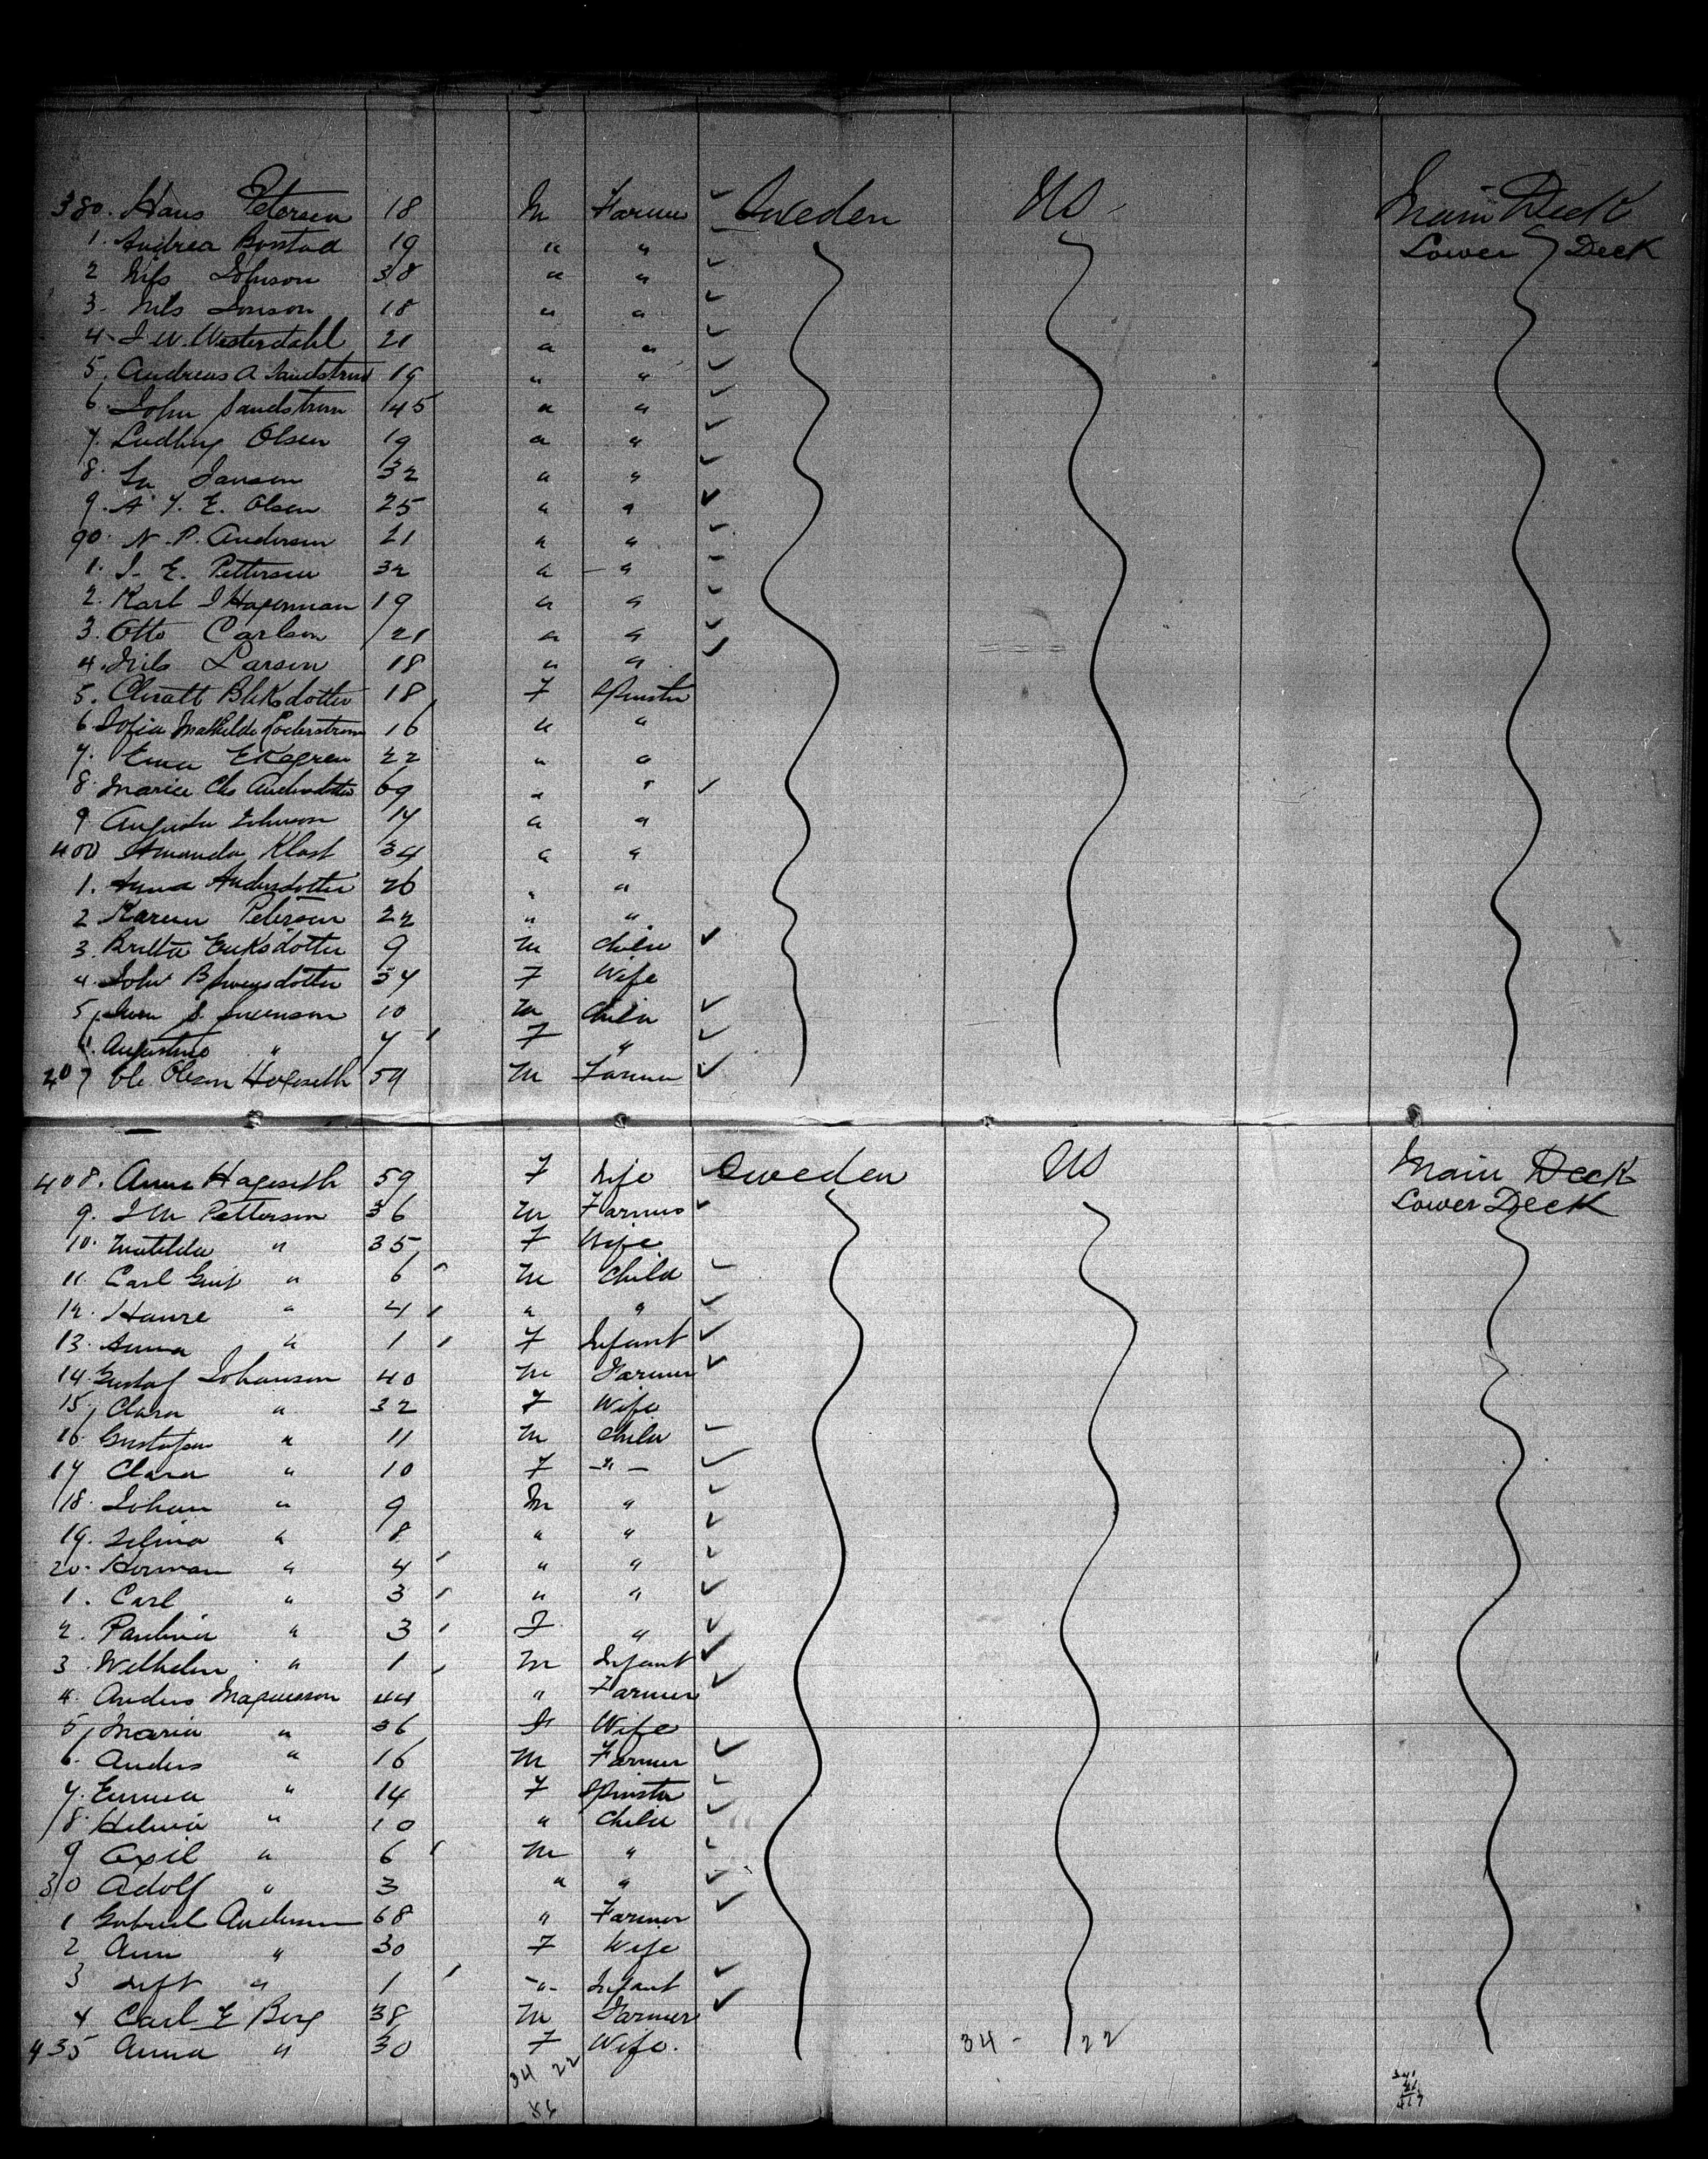 380. Hans Petersen 18 M Farmer ✓ Sweden US - Main Deck
1. Andrea Bonstad 19 " " ✓ Lower Deck
2 Nils Johnson 38 " " ✓
3- Nils Jonson 18 " " ✓
4. J W. Westerdahl 21 " " ✓
5. Andreas A Sandstrum 19 " " ✓
6. John Sandstrum 45 " " ✓
7. Ludbug Olsen 19 " " ✓
8. Janson 32 " " ✓
9. A Y. E. Olsen 25 " " ✓
90. N. P. Andersen 21 " " ✓
1. J- E. Pettersen 32 " " ✓
2. Karl J Hagerman 19 " " ✓
3. Otto Carlson 21 " " ✓
4. Nils Larsen 18 " " ✓
5. 18 F Spinster
6. Sofia Mathilde Soderstrom 16 " "
7. Emma Ekegren 22 " "
8. Maria Chs Andersdotter 69 " " ✓
9. Augusta Johnson 17 " "
400 Amanda Klast 34 " "
1. Anna Andersdotter 26 " "
2 Karen Petersen 22 " "
3. Britta Eriksdotter 9 M Child ✓
4. John B Swensdotter 34 F Wife
5, Sven S. Swenson 10 M Child ✓
6. Augustine " 7 F " ✓
407 Ole Olsen Hageseth 59 M Farmer ✓
408. Anne Hageseth 59 F Wife Sweden US Main Deck
9. J M Petterson 36 M Farmer ✓ Lower Deck
10. Matilda " 35 F Wife
11. Carl Gust " 6 M Child ✓
12. Hanre " 4 " " ✓
13. Anna " 1 F Infant ✓
14. Gustaf Johanson 40 M Farmer ✓
15, Clara " 32 F Wife
16. Gustafson " 11 M Child ✓
17 Clara " 10 F -"- ✓
18. Johan " 9 M " ✓
19. Selina " 8 " " ✓
20. Herman " 4 " " ✓
1. Carl " 3 " " ✓
2. Paulina " 3 F " ✓
3 Wilhelm " 1 M Infant ✓
4. Anders Magnusson 44 " Farmer ✓
5, Maria " 36 F Wife
6. Anders " 16 M Farmer ✓
7. Emma " 14 F Spinster ✓
8. Helwia " 10 " Child ✓
9 Axil " 6 M " ✓
30 Adolf " 3 " " ✓
1 Gabriel Anderson 68 " Farmer ✓
2 Ann " 30 F Wife
3 " 1 -"- Infant ✓
4 Carl E Berg 38 M Farmer ✓
435 Anna " 30 F Wife. 34 - 22
34 22